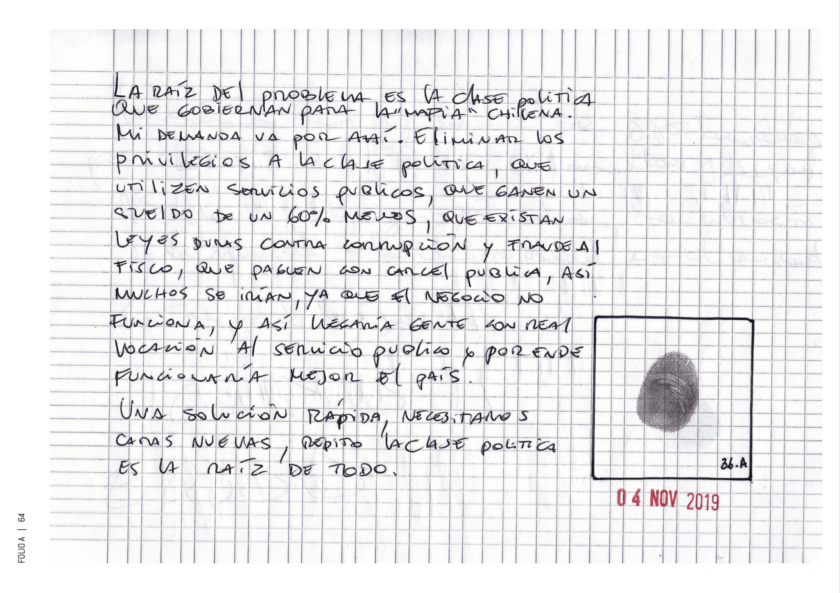 LA RAÍZ DEl PROBLEMA ES lA ClASE POLÍTICA
QUE GOBIERNAN PARA lA "MAFIA" CHILENA.
MI DEMANDA VA POR AHÍ. ElIMINAR LOS
PRIVILEGIOS A LA ClASE POLÍTICA, QUE
UTILIZEN SERVICIOS PUBLICOS, QUE GANEN UN
SUElDO DE UN 60% MENOS, QUE EXISTAN
LEYES DURAS CONTRA CORRUPCIÓN Y FRAUDE Al
FISCO, QUE PAGUEN CON CARCEl PUBLICA, ASÍ
MUCHOS SE IRÍAN, YA QUE El NEGOCIO NO
FUNCIONA, Y ASÍ LLEGARÍA GENTE CON REAl
VOCACIÓN Al SERVICIO PUBLICO Y POR ENDE
FUNCIONARÍA MEJOR El PAÍS.
UNA SOLUCIÓN RÁPIDA, NECESITAMOS
CARAS NUEVAS, REPITO LA ClASE POLITICA
ES LA RAÍZ DE TODO.
36.A
04 NOV 2019
FOLIO A | 64